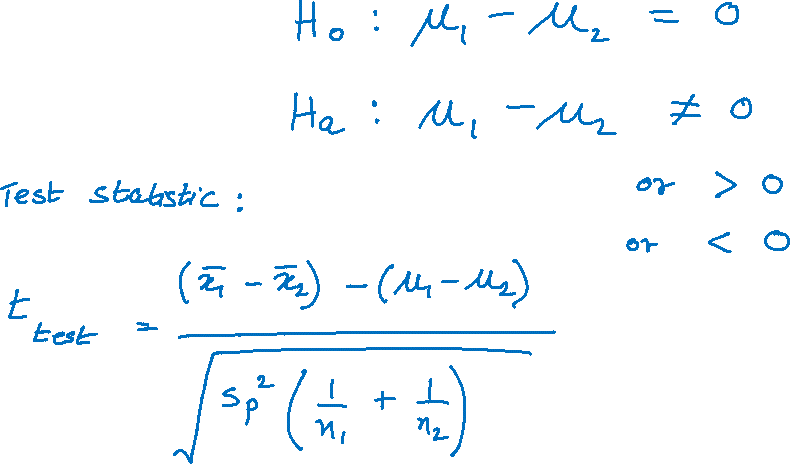 H₀ : μ₁ − μ₂ = 0
Hₐ : μ₁ − μ₂ ≠ 0
or > 0
or < 0
Test statistic :
t_test = ((x̄₁ − x̄₂) − (μ₁ − μ₂)) / √(sₚ² (1/n₁ + 1/n₂))